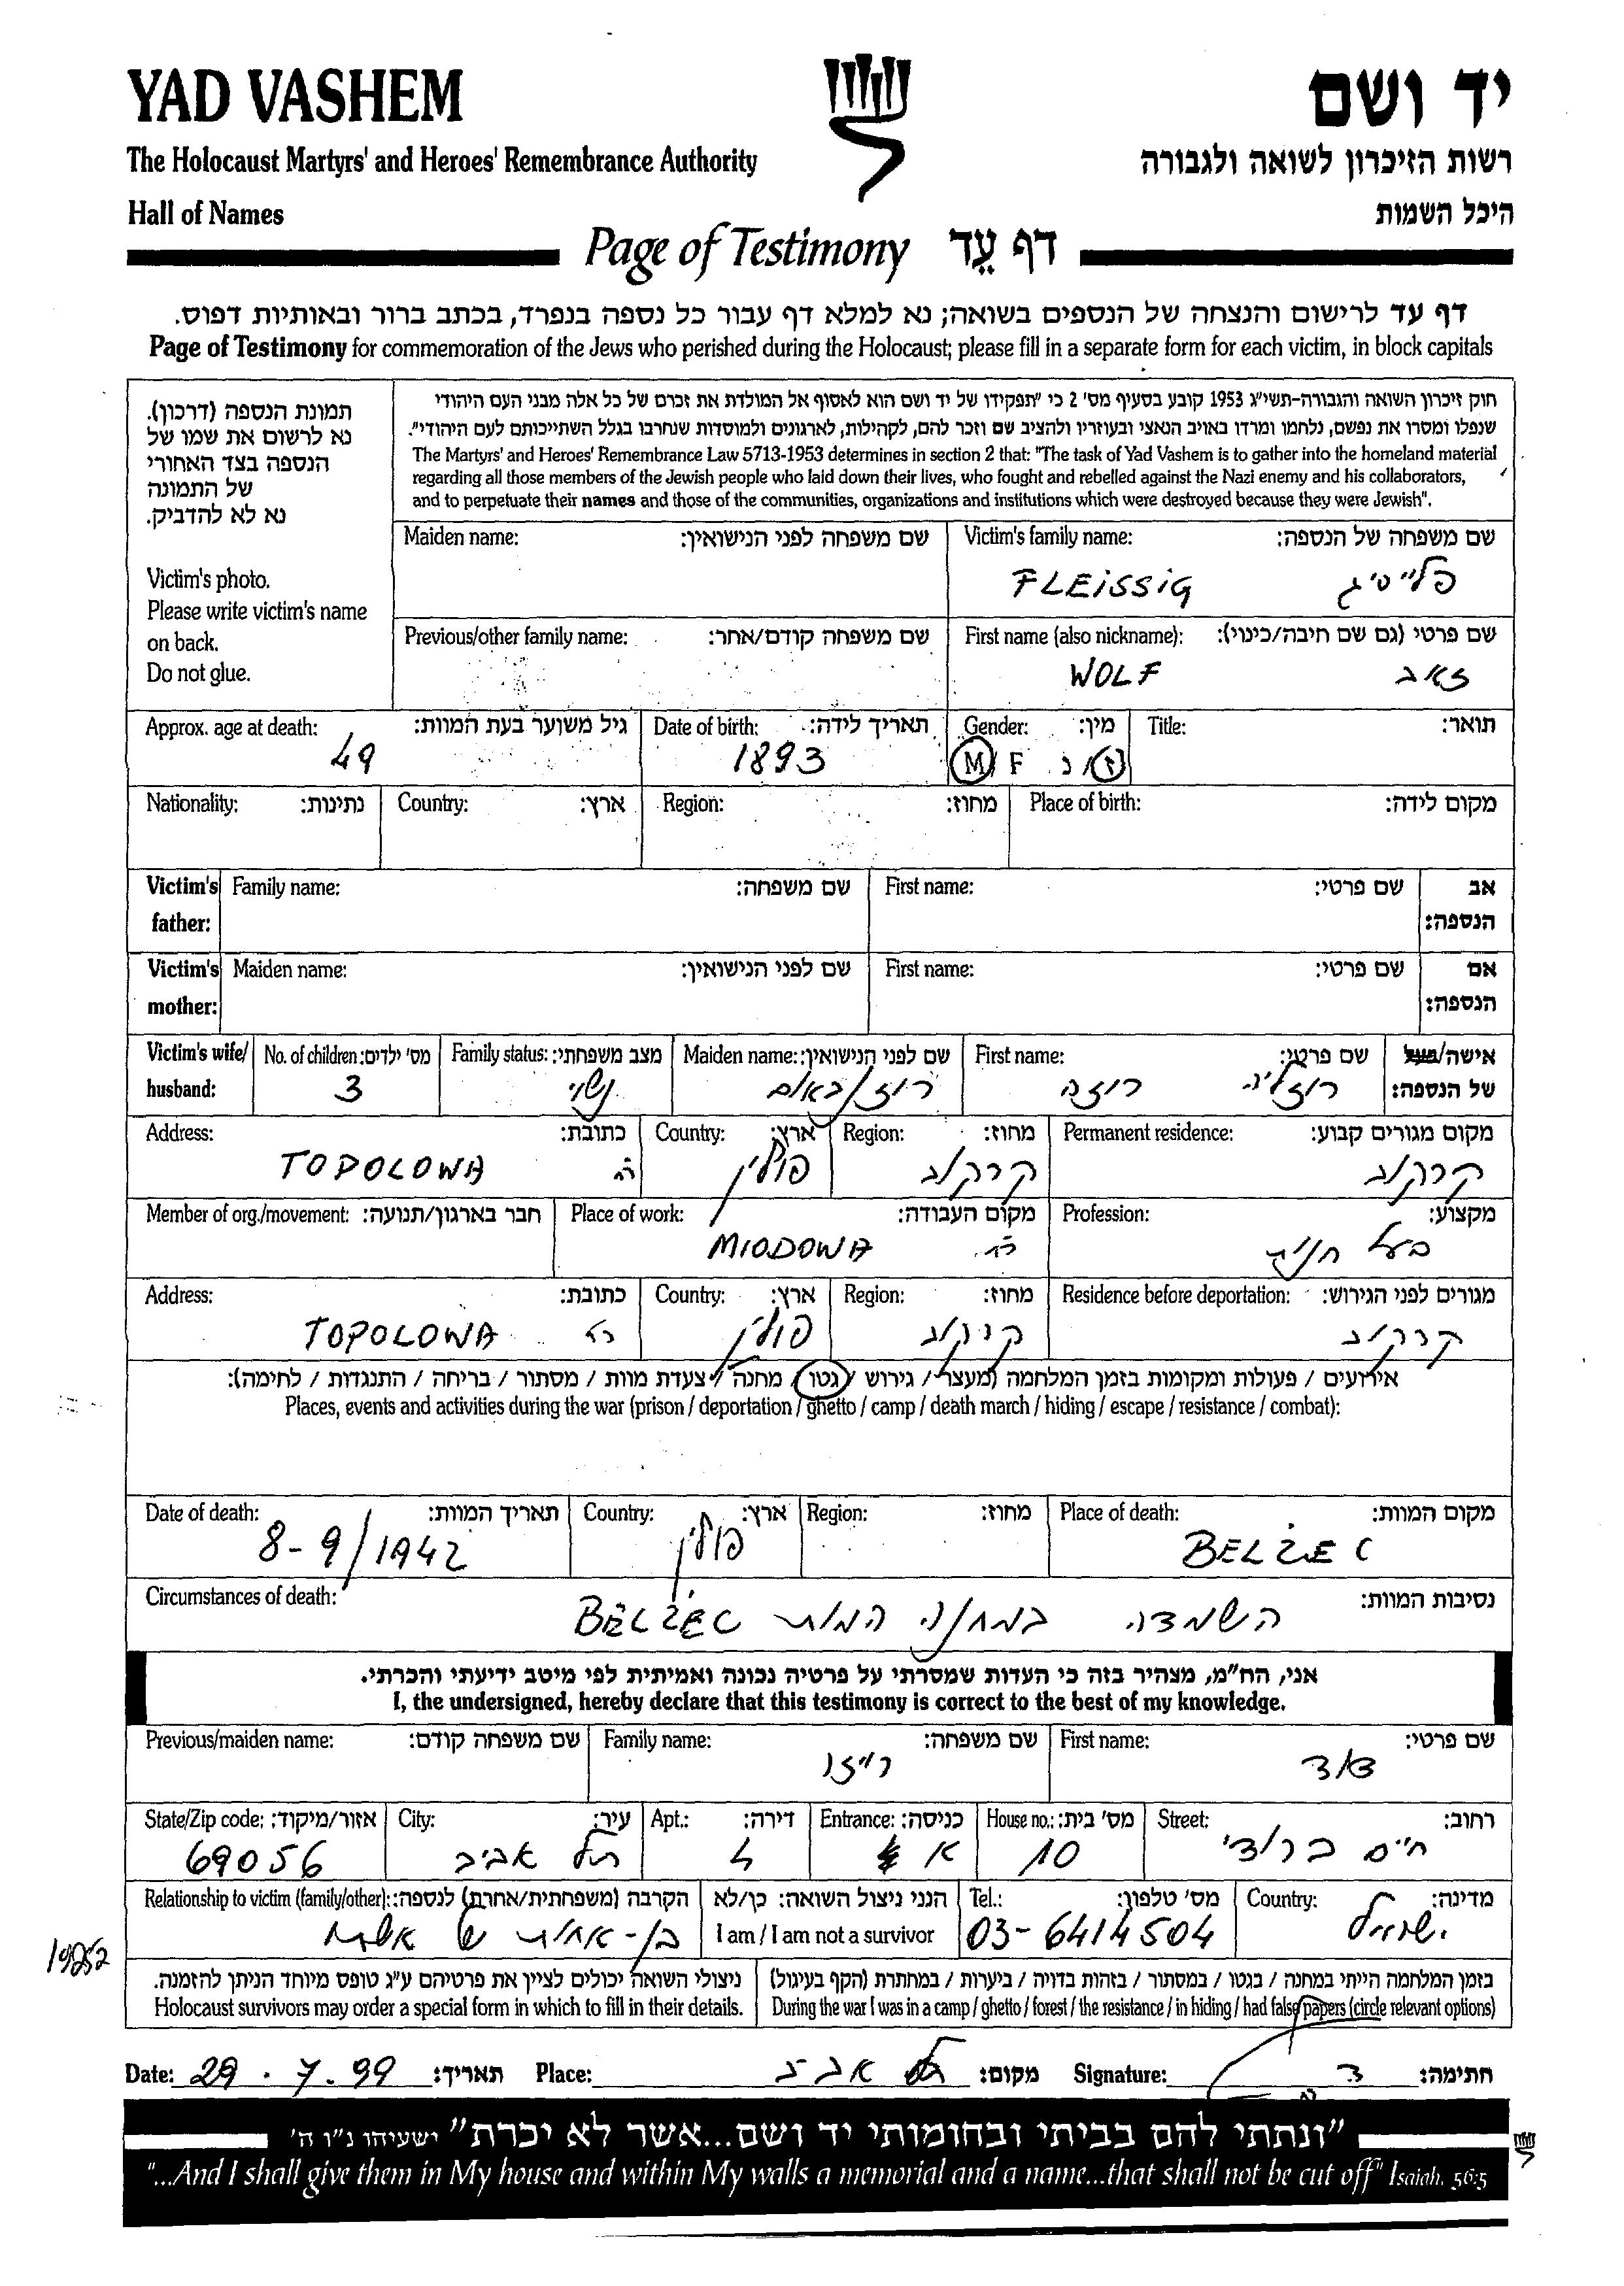 YAD VASHEM
יד ושם
The Holocaust Martyrs' and Heroes' Remembrance Authority
רשות הזיכרון לשואה ולגבורה
Hall of Names
היכל השמות
Page of Testimony דף עֵד
דף עד לרישום והנצחה של הנספים בשואה; נא למלא דף עבור כל נספה בנפרד, בכתב ברור ובאותיות דפוס.
Page of Testimony for commemoration of the Jews who perished during the Holocaust; please fill in a separate form for each victim, in block capitals
תמונת הנספה (דרכון).
נא לרשום את שמו של
הנספה בצד האחורי
של התמונה
נא לא להדביק.
Victim's photo.
Please write victim's name
on back.
Do not glue.
חוק זיכרון השואה והגבורה-תשי"ג 1953 קובע בסעיף מס' 2 כי "תפקידו של יד ושם הוא לאסוף אל המולדת את זכרם של כל אלה מבני העם היהודי
שנפלו ומסרו את נפשם, נלחמו ומרדו באויב הנאצי ובעוזריו ולהציב שם וזכר להם, לקהילות, לארגונים ולמוסדות שנחרבו בגלל השתייכותם לעם היהודי".
The Martyrs' and Heroes' Remembrance Law 5713-1953 determines in section 2 that: "The task of Yad Vashem is to gather into the homeland material
regarding all those members of the Jewish people who laid down their lives, who fought and rebelled against the Nazi enemy and his collaborators,
and to perpetuate their names and those of the communities, organizations and institutions which were destroyed because they were Jewish".
Maiden name: שם משפחה לפני הנישואין: Victim's family name: שם משפחה של הנספה:
FLEISSIG פלייסיג
Previous/other family name: שם משפחה קודם/אחר: First name (also nickname): שם פרטי (גם שם חיבה/כינוי):
WOLF זאב
Approx. age at death: גיל משוער בעת המוות: Date of birth: תאריך לידה: Gender: מין: Title: תואר:
49 1893 M F ז/נ
Nationality: נתינות: Country: ארץ: Region: מחוז: Place of birth: מקום לידה:
Victim's father: Family name: שם משפחה: First name: שם פרטי: אב הנספה:
Victim's mother: Maiden name: שם לפני הנישואין: First name: שם פרטי: אם הנספה:
Victim's wife/ husband: No. of children: מס' ילדים: Family status: מצב משפחתי: Maiden name: שם לפני הנישואין: First name: שם פרטי: אישה/בעל של הנספה:
3 נשוי רוזנבאום רוזה רוזליה
Address: כתובת: Country: ארץ: Region: מחוז: Permanent residence: מקום מגורים קבוע:
TOPOLOWA רח פולין קרקוב קרקוב
Member of org./movement: חבר בארגון/תנועה: Place of work: מקום העבודה: Profession: מקצוע:
MIODOWA רח. בעל חנות
Address: כתובת: Country: ארץ: Region: מחוז: Residence before deportation: מגורים לפני הגירוש:
TOPOLOWA רח פולין קרקוב קרקוב
אירועים / פעולות ומקומות בזמן המלחמה (מעצר / גירוש / גטו / מחנה / צעדת מוות / מסתור / בריחה / התנגדות / לחימה):
Places, events and activities during the war (prison / deportation / ghetto / camp / death march / hiding / escape / resistance / combat):
Date of death: תאריך המוות: Country: ארץ: Region: מחוז: Place of death: מקום המוות:
8-9/1942 פולין BELŻEC
Circumstances of death: נסיבות המוות:
השמדה במחנה המוות BELŻEC
אני, הח"מ, מצהיר בזה כי העדות שמסרתי על פרטיה נכונה ואמיתית לפי מיטב ידיעתי והכרתי.
I, the undersigned, hereby declare that this testimony is correct to the best of my knowledge.
Previous/maiden name: שם משפחה קודם: Family name: שם משפחה: First name: שם פרטי:
רייזנר דוד
State/Zip code: אזור/מיקוד: City: עיר: Apt.: דירה: Entrance: כניסה: House no.: מס' בית: Street: רחוב:
69056 תל אביב 4 א 10 חיים ברודי
Relationship to victim (family/other): הקרבה (משפחתית/אחרת) לנספה: הנני ניצול השואה: כן/לא Tel.: מס' טלפון: Country: מדינה:
בן-אחות של אשתו I am / I am not a survivor 03-6414504 ישראל
19252
ניצולי השואה יכולים לציין את פרטיהם ע"ג טופס מיוחד הניתן להזמנה. בזמן המלחמה הייתי במחנה / בגטו / במסתור / בזהות בדויה / ביערות / במחתרת (הקף בעיגול)
Holocaust survivors may order a special form in which to fill in their details. During the war I was in a camp / ghetto / forest / the resistance / in hiding / had false papers (circle relevant options)
Date: 29.7.99 תאריך: Place: תל אביב מקום: Signature: חתימה:
"ונתתי להם בביתי ובחומותי יד ושם...אשר לא יכרת" ישעיהו נ"ו ה'
"...And I shall give them in My house and within My walls a memorial and a name...that shall not be cut off" Isaiah. 56:5